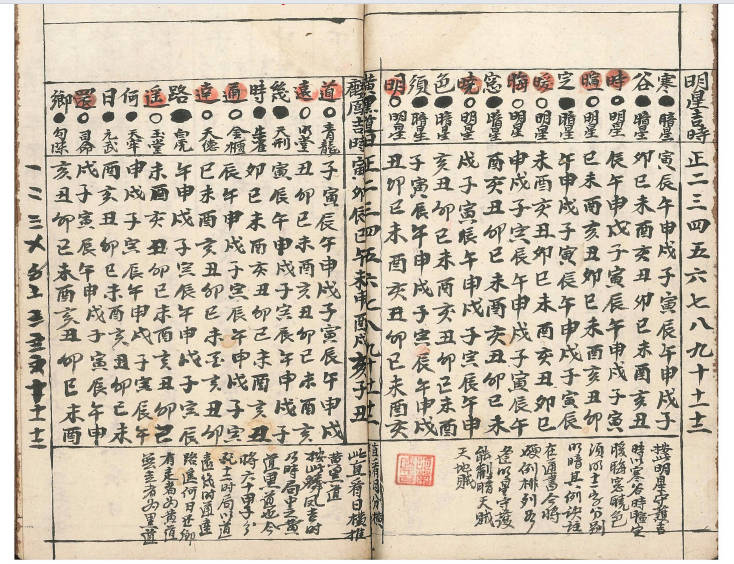 明星吉時 正二三四五六七八九十十一十二
寒●暗星 寅辰午申戌子寅辰午申戌子
谷●暗星 卯巳未酉亥丑卯巳未酉亥丑
時○明星 辰午申戌子寅辰午申戌子寅
暄○明星 巳未酉亥丑卯巳未酉亥丑卯
定●暗星 午申戌子寅辰午申戌子寅辰
暖○明星 未酉亥丑卯巳未酉亥丑卯巳
晦○明星 申戌子寅辰午申戌子寅辰午
窓●暗星 酉亥丑卯巳未酉亥丑卯巳未
曉○明星 戌子寅辰午申戌子寅辰午申
色●暗星 亥丑卯巳未酉亥丑卯巳未酉
須●暗星 子寅辰午申戌子寅辰午申戌
明○明星 丑卯巳未酉亥丑卯巳未酉亥
按明星守護吉
時以寒谷時暄定
暖晦窓曉色
須明十二字分別
明暗其例訣註
在通書今將
硬例排列
若明星守護
能制暗天賊
天地賊
黄黑道日 正二三四五六七八九十十一十二
吉時 寅卯辰巳午未申酉戌亥子丑
此宜看日橫推
道○青龍 子寅辰午申戌子寅辰午申戌
遠○明堂 丑卯巳未酉亥丑卯巳未酉亥
幾●天刑 寅辰午申戌子寅辰午申戌子
時●朱雀 卯巳未酉亥丑卯巳未酉亥丑
通○金櫃 辰午申戌子寅辰午申戌子寅
達○天德 巳未酉亥丑卯巳未酉亥丑卯
路●白虎 午申戌子寅辰午申戌子寅辰
遥○玉堂 未酉亥丑卯巳未酉亥丑卯巳
何●天牢 申戌子寅辰午申戌子寅辰午
日●元武 酉亥丑卯巳未酉亥丑卯巳未
還○司命 戌子寅辰午申戌子寅辰午申
鄉●勾陳 亥丑卯巳未酉亥丑卯巳未酉
黄黑二道
按此吉時
乃時局中之黄
道黑黄並今
將六十甲子分
時局以道
遠幾时通達
路遥何日还鄉
有走者為黄道
無走者為黑道